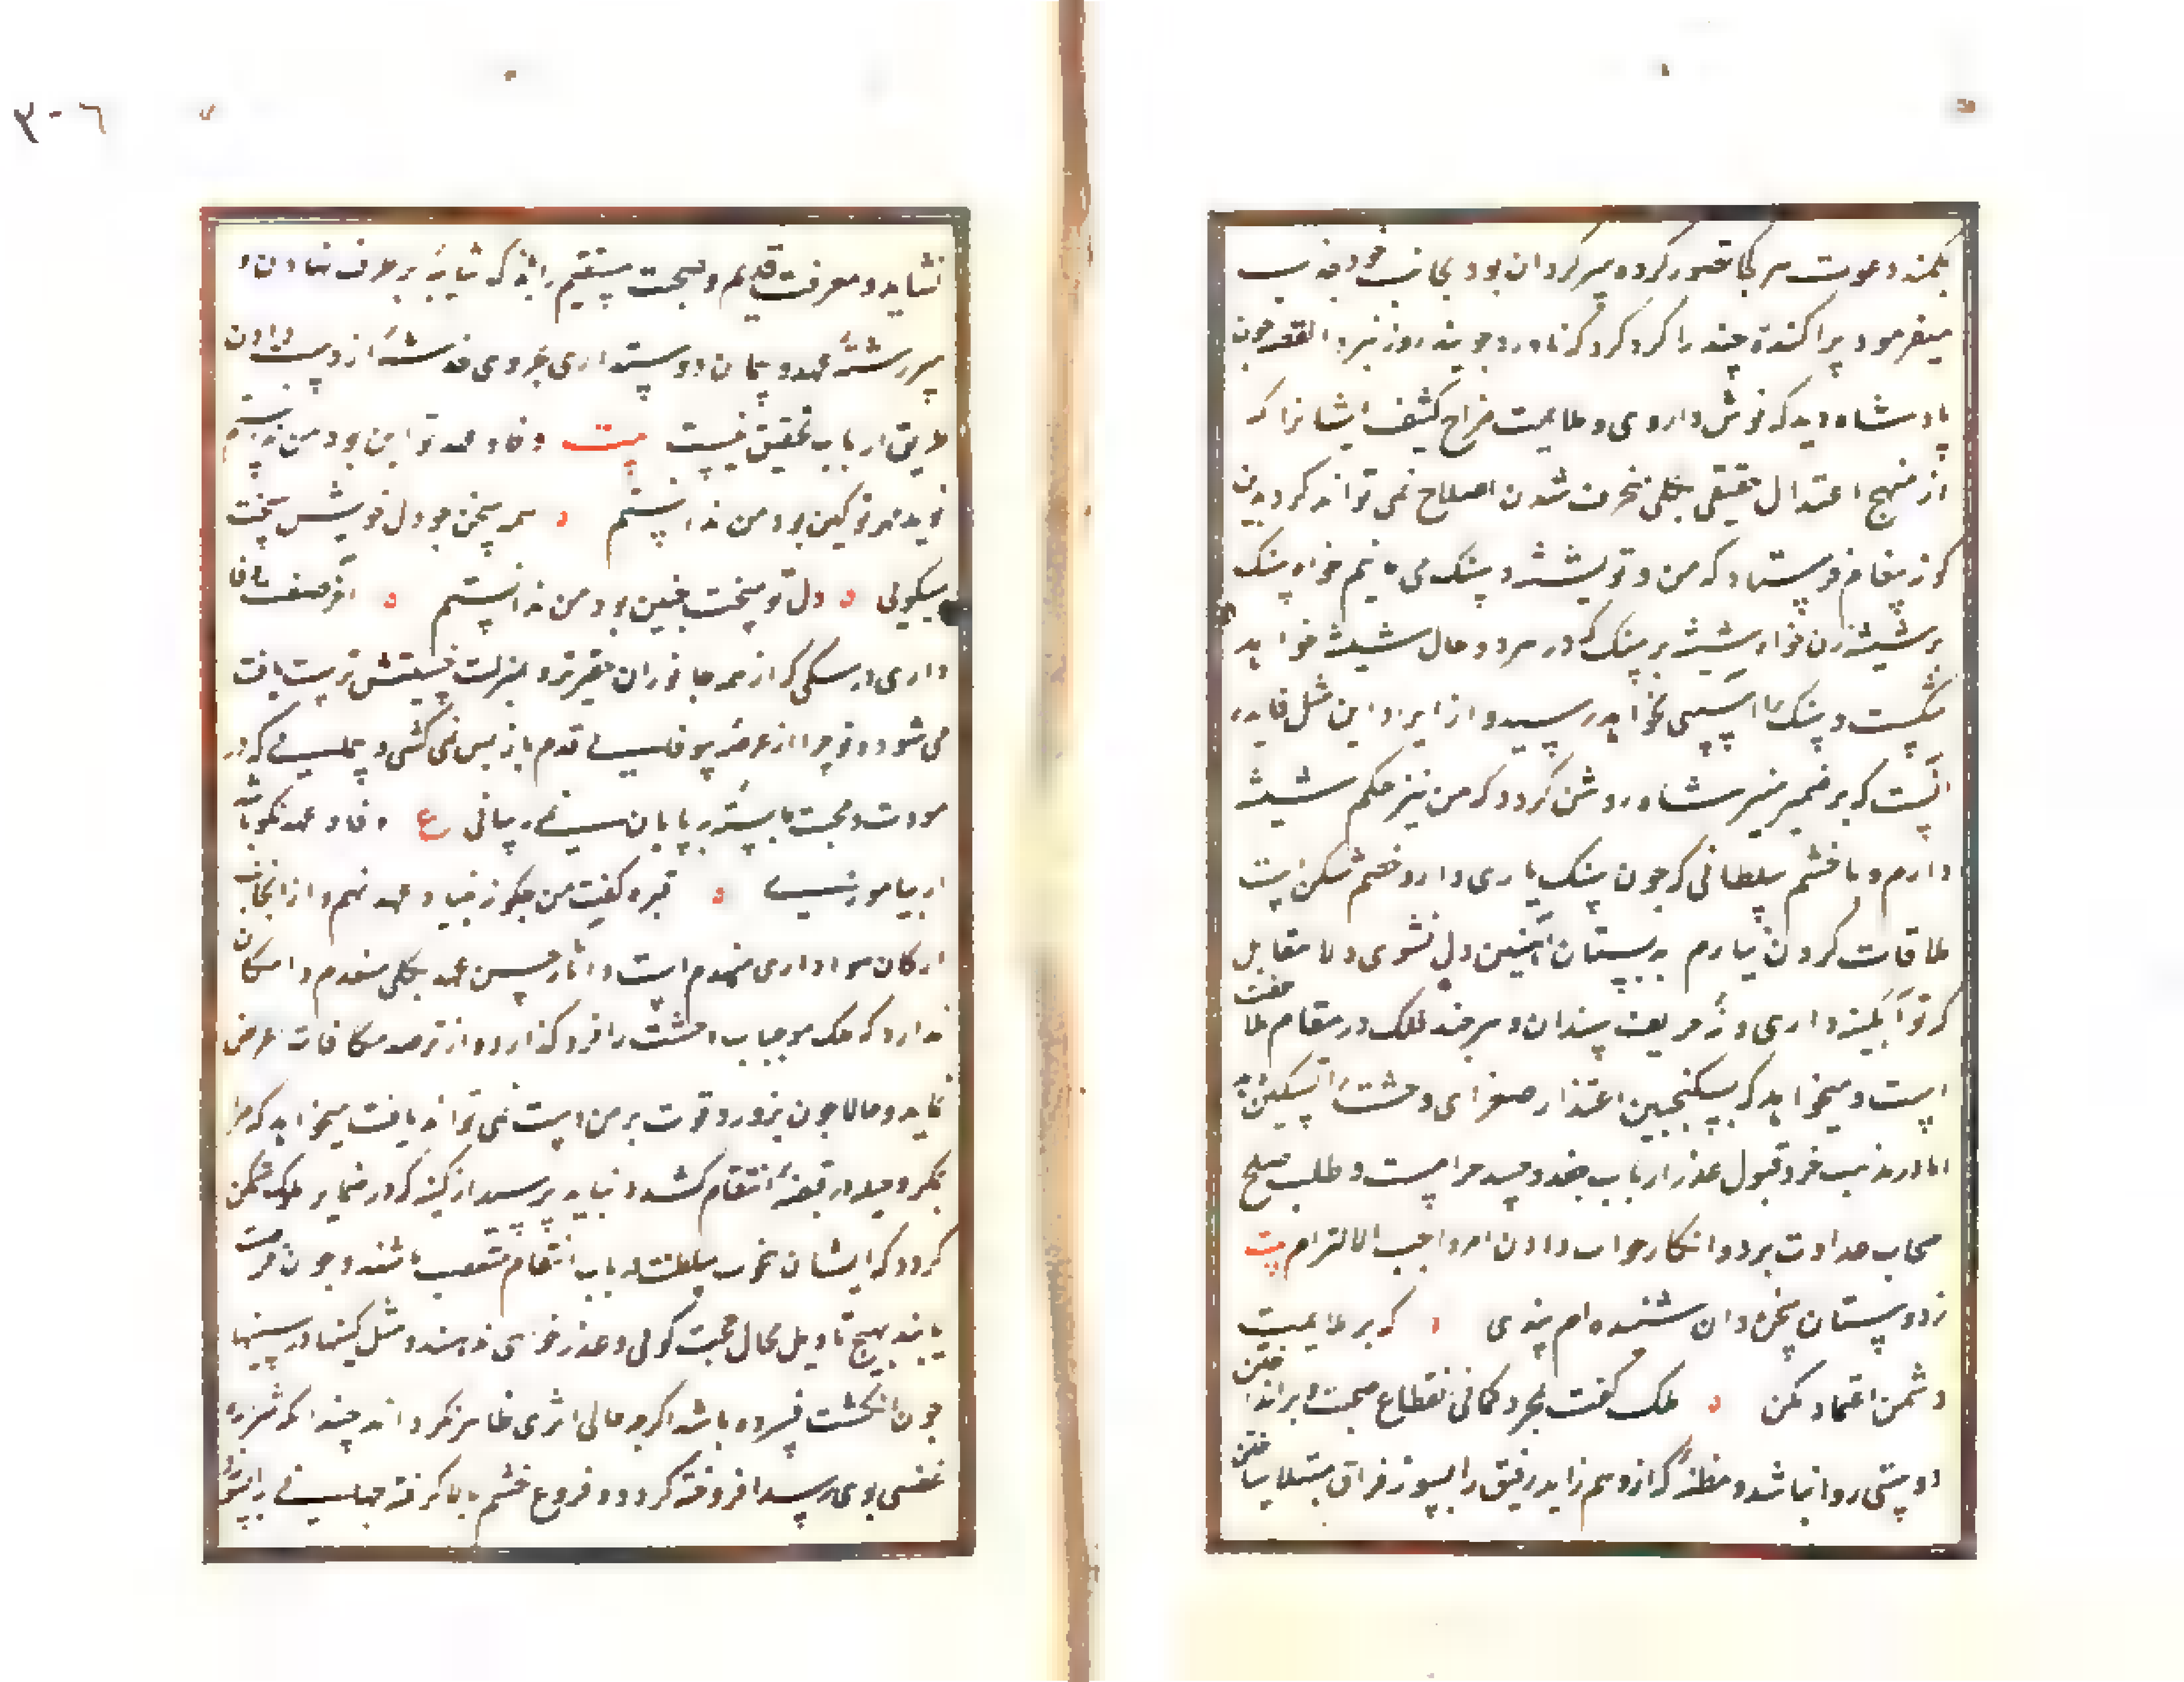 بکمند دعوت هر کجا تصور کرده سر کردان بود بجانب خود جذب
میفرمود پراکندهٔ چند را کرد کرد کرنا درد جویند روز نبرد القصه چون
پادشاه دید که نوش داروی و ملایمت مزاح کثیف ایشانرا که
از منهج اعتدال حقیقی بکلی منحرف شدن اصلاح نمی تواند کرد بدین
کونه پیغام فرستاد که من و تو بشیشه و سنک می مانیم خواه سنک
بر شیشه زن خواه شیشه بر سنک که در هر دو حال شیشه خواهد
شکست و سنک را آسیبی نخواهد رسید و از ایراد این مثل فایده
آنست که بر ضمیر منیر شاه روشن کردد که من نیز حکم شیشه
دارم و با خشم سلطانی که چون سنک یاری دارد خصم شکن است
ملاقات کردن نیارم به سستان آهنین دل نشوی دلا مقابل
که تو آبکینه داری و نه حریف سندان و هر چند ملک در مقام ملاطفت
است و میخواهد که بسکنجبین اعتذار صفرای وحشت را تسکین دهد
اما در مذهب خرد قبول عذر ارباب حقد و حسد حرامست و طلب صلح
اصحاب عداوت برد و انکار جواب دادن امر واجب الالتزام بیت
ز دوستان سخن دان شنیده ام پندی که بر ملایمت
دشمن اعتماد مکن ملک کفت بمجرد کمانی انقطاع صحبت و بر انداختن
دوستی روا نباشد و مظنهٔ که از وهم زاید رفیق را بسوز فراق مبتلا ساختن
نشاید و معرفت قدیم و صحبت مستقیم را بهٔ که شایبهٔ بر طرف نهادن و
سر رشتهٔ عهد و پیمان دوستداری بخروی خدشهٔ از دست دادن
طریق ارباب تحقیق نیست بیت وفاء عهد تو این بود من ندانستم
نوید مهر تو کین بود من ندانستم همه سخن چو دل خویش سخت
میکوئی دل تو سخت چنین بود من ندانستم آخر صفت وفا
داری در سکی که از همه جانوران حقیرتر و بمنزلت خسیس تر است یافت
می شود و تو چرا از عرصهٔ بیوفایی قدم باز پس نمی کشی و عملی که در
مودت و محبت بایستی بپایان نمی رسانی ع وفاء عهد نکو باشد
ار بیاموزی قبره کفت من چکونه بنیاد عهد نهم و از آنجانب
ارکان هواداری منهدم است و آثار حسن عهد بکلی منعدم و امکان
ندارد که ملک موجبات وحشت را فرو کذارد و از ترصد مکافات اعراض
نماید و حالا چون بزور و قوت بر من دست نمی تواند یافت میخواهد که مرا
بمکر و حیله در قبضهٔ انتقام کشد و نباید پرسید از کینهٔ که در ضمایر ملوک متمکن
کردد که ایشان بنخوت سلطنت در باب انتقام متعصب باشند و چون فرصت
یابند بهیچ تاویل مجال حجت کوئی و عذر خواهی ندهند و مثل کینها در سینها
چون انکشت افسرده باشد اکرچه حالی اثری ظاهر نکرداند چندانکه شررهٔ
غضبی بوی رسد افروخته کردد و فروغ خشم بالا کرفته جهانی را بسوزد
٣٠٦